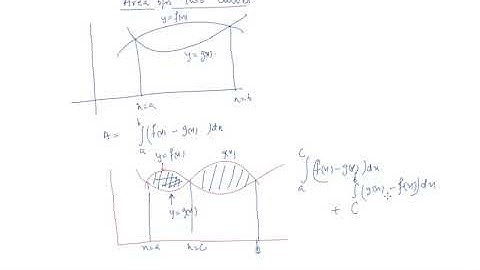 Area b/n two curves
y=f(x)
y=g(x)
x=a
x=b
A= ∫_a^b (f(x) - g(x)) dx
y=f(x)
g(x)
y=g(x)
x=a
x=c
b
∫_a^c (f(x)-g(x)) dx
+ ∫_c^b (g(x) - f(x)) dx